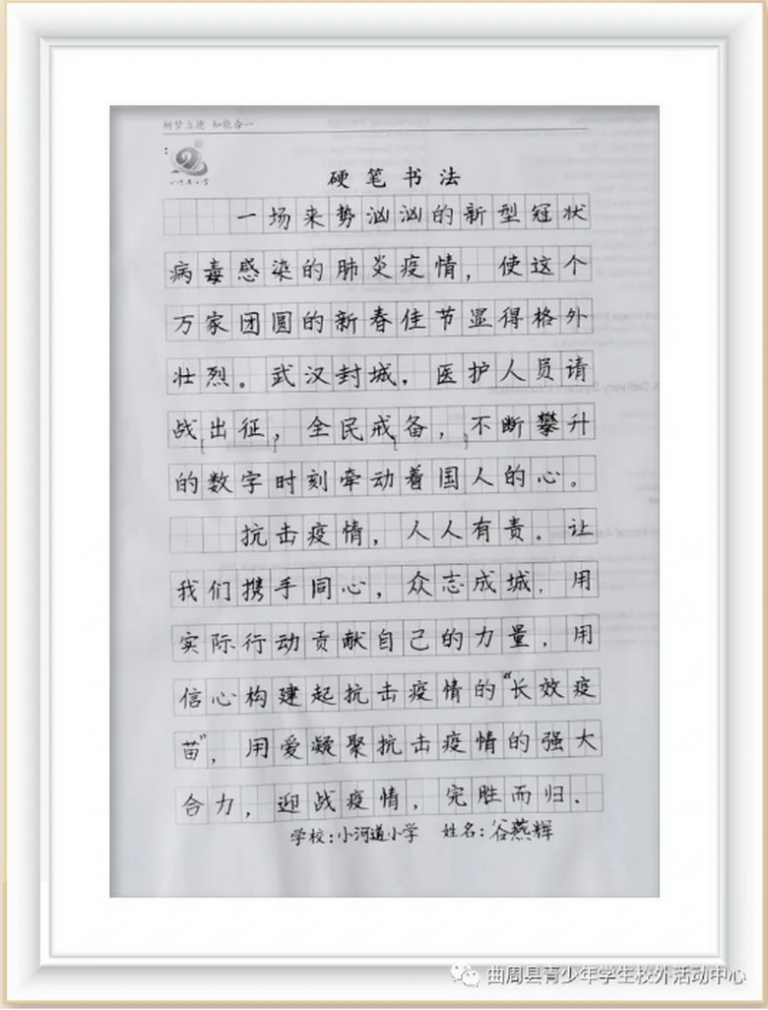 树梦立德 知能合一
小河道小学
硬笔书法
一场来势汹汹的新型冠状
病毒感染的肺炎疫情，使这个
万家团圆的新春佳节显得格外
壮烈。武汉封城，医护人员请
战出征，全民戒备，不断攀升
的数字时刻牵动着国人的心。
抗击疫情，人人有责。让
我们携手同心，众志成城，用
实际行动贡献自己的力量，用
信心构建起抗击疫情的“长效疫
苗”，用爱凝聚抗击疫情的强大
合力，迎战疫情，完胜而归．
学校：小河道小学 姓名：谷燕辉
曲周县青少年学生校外活动中心